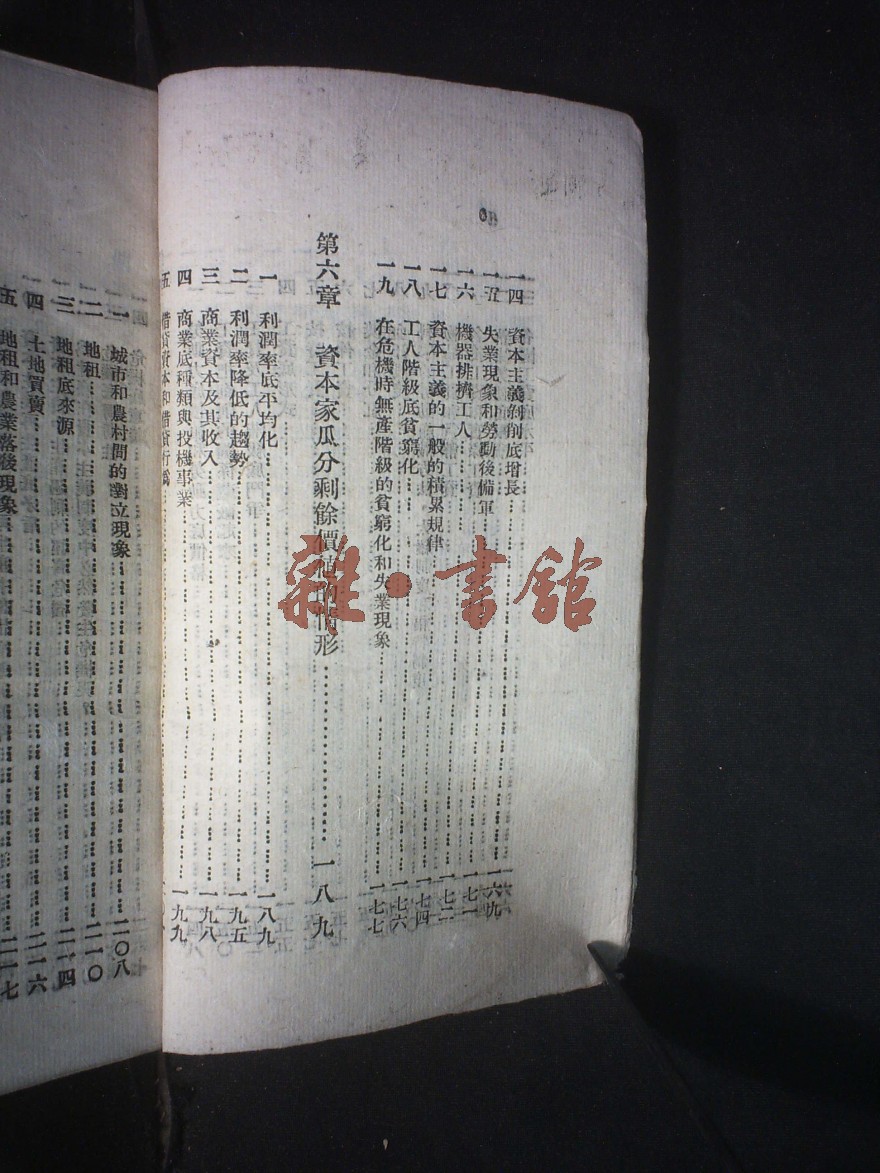 一四 資本主義剝削底增長……一六九
一五 失業現象和勞動後備軍……一七一
一六 機器排擠工人……一七二
一七 資本主義的一般的積累規律……一七四
一八 工人階級底貧窮化……一七六
一九 在危機時無產階級的貧窮化和失業現象……一七七
第六章 資本家瓜分剩餘價值的情形……一八九
一 利潤率底平均化……一八九
二 利潤率降低的趨勢……一九五
三 商業資本及其收入……一九八
四 商業底種類與投機事業……一九九
五 借貸資本和借貸行……
一 城市和農村間的對立現象……二〇八
二 地租……二一〇
三 地租底來源……二一四
四 土地買賣……二一六
五 地租和農業落後現象……二一七
雜·書館